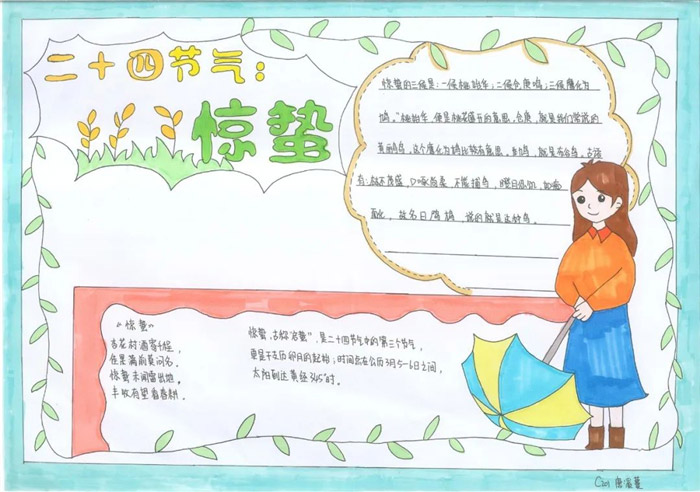 二十四节气：
惊蛰
惊蛰的三候是：一候桃始华；二候仓庚鸣；三候鹰化为
鸠。"桃始华，便是桃花盛开的意思，仓庚，就是我们常说的
黄鹂鸟，这个鹰化为鸠比较有意思，鸠，就是布谷鸟。古

有：
不能捕鸟，瞪目
故名曰鹰鸠，说的就是
"惊蛰"
杏花村酒寄
佳果满前莫问名。
惊蛰未闻雷出地，
丰收有望看春耕。
惊蛰，古称"启蛰"，是二十四节气中的第三个节气，
更是干支历卯月的起始；时间点在公历3月5-6日之间，
太阳到达黄经345°时。
C201